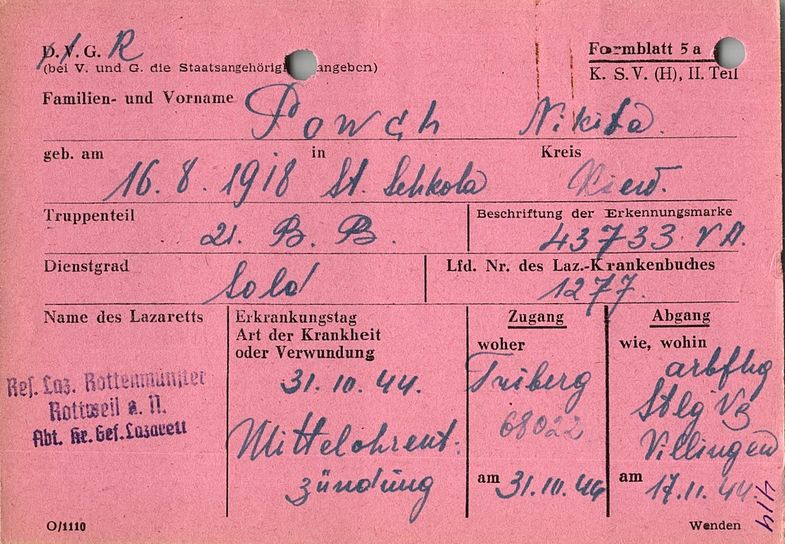 D. V. G. R
Formblatt 5 a
(bei V. und G. die Staatsangehörig angeben)
K. S. V. (H), II. Teil
Familien- und Vorname Powch Nikita.
geb. am in Kreis
16. 8. 1918 St. Schkola Kiew.
Truppenteil Beschriftung der Erkennungsmarke
21. B. B. 43733 V A.
Dienstgrad Lfd. Nr. des Laz.-Krankenbuches
Sold 1277.
Name des Lazaretts
Res. Laz. Rottenmünster
Rottweil a. N.
Abt. Kr. Gef. Lazarett
Erkrankungstag
Art der Krankheit
oder Verwundung
31. 10. 44.
Mittelohrent-
zündung
Zugang
woher
Triberg
68022
am 31. 10. 44
Abgang
wie, wohin
arbfhg
Stlg V B
Villingen
am 17. 11. 44.
4/14
O/1110
Wenden